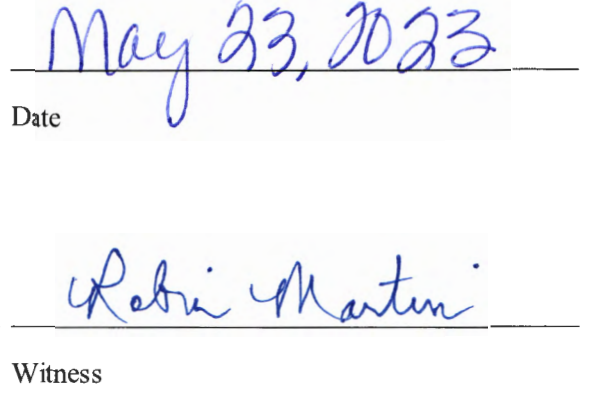 May 23, 2023
Date
Robin Martin
Witness